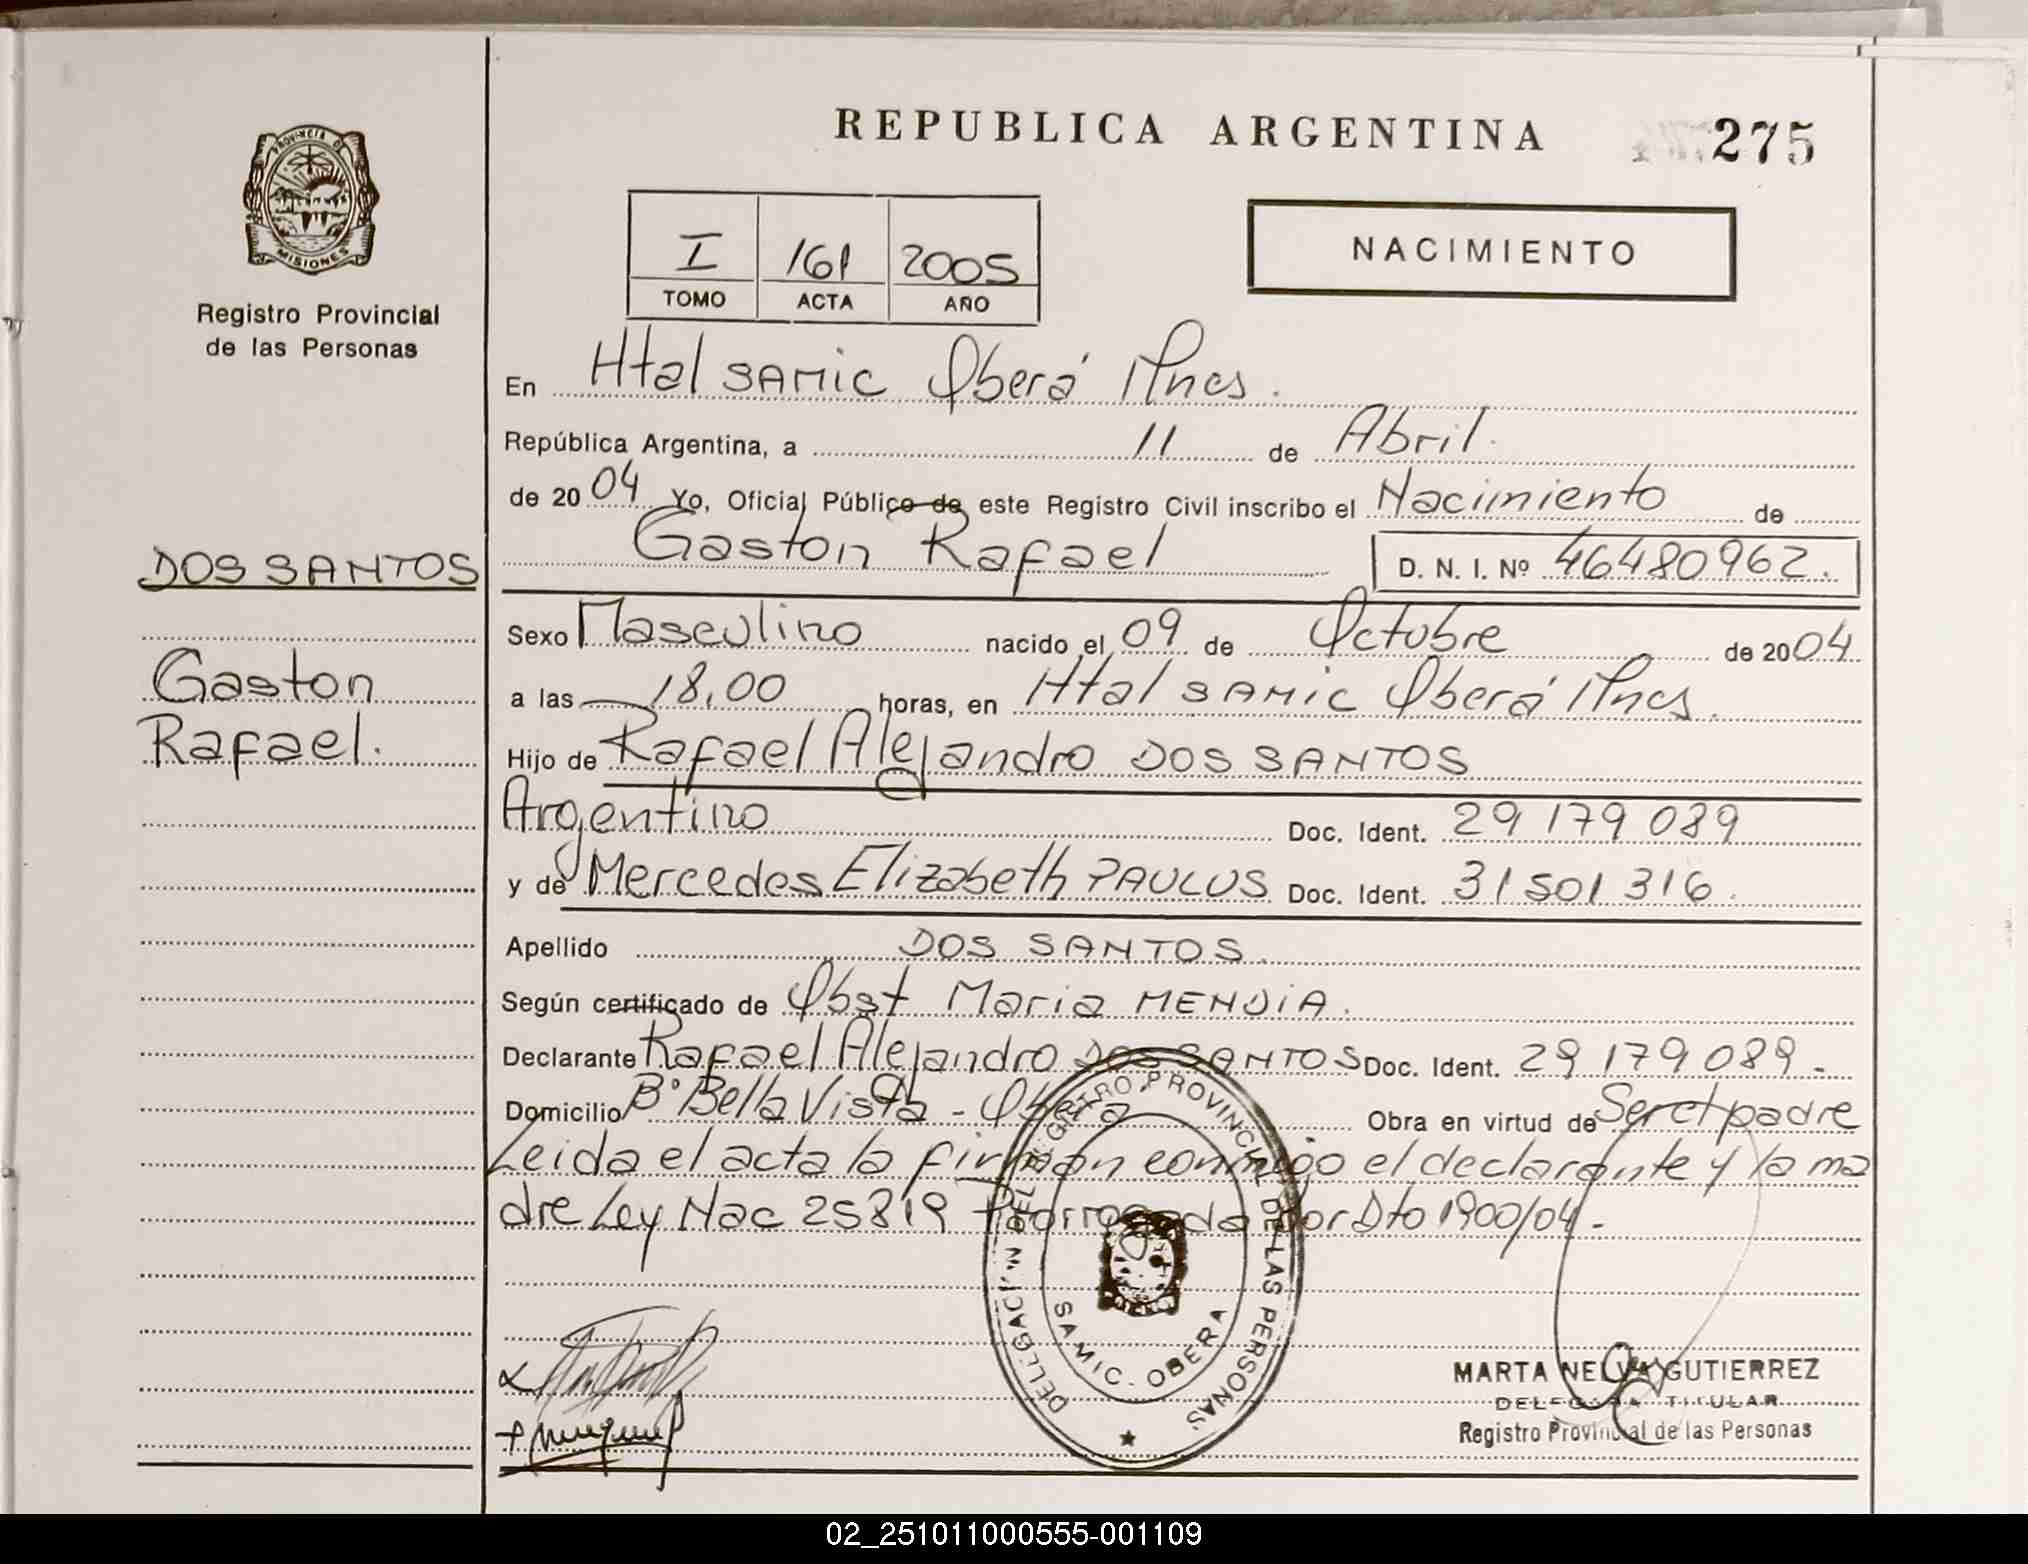 REPUBLICA ARGENTINA
275
PROVINCIA DE
MISIONES
Registro Provincial
de las Personas
I 161 2005
TOMO ACTA AÑO
NACIMIENTO
En Htal SAMIC Oberá Mnes.
República Argentina, a 11 de Abril.
de 2004 Yo, Oficial Público de este Registro Civil inscribo el Nacimiento de
Gaston Rafael D. N. I. Nº 46480962.
DOS SANTOS
Gaston
Rafael.
Sexo Masculino nacido el 09 de Octubre de 2004
a las 18,00 horas, en Htal SAMIC Oberá Mnes.
Hijo de Rafael Alejandro DOS SANTOS
Argentino Doc. Ident. 29 179 089
y de Mercedes Elizabeth PAULUS Doc. Ident. 31 501 316.
Apellido DOS SANTOS.
Según certificado de Obst Maria MENDIA.
Declarante Rafael Alejandro DOS SANTOS Doc. Ident. 29 179 089.
Domicilio Bº Bella Vista - Oberá Obra en virtud de Ser el padre
Leida el acta la firman conmigo el declarante y la ma
dre Ley Nac 25819 Prorrogada por Dto 1900/04.-
DELEGACION DEL REGISTRO PROVINCIAL DE LAS PERSONAS
SAMIC - OBERA
MARTA NELVA GUTIERREZ
DELEGADA TITULAR
Registro Provincial de las Personas
02_251011000555-001109